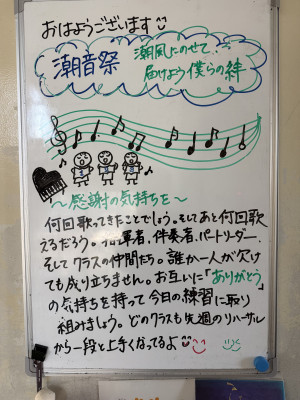 おはようございます
潮音祭
潮風にのせて、
届けよう僕らの絆
～感謝の気持ちを～
何回歌ってきたことでしょう。そしてあと何回歌
えるだろう。指揮者、伴奏者、パートリーダー、
そしてクラスの仲間たち。誰か一人が欠け
ても成り立ちません。お互いに「ありがとう」
の気持ちを持って今日の練習に取り
組みましょう。どのクラスも先週のリハーサル
から一段と上手くなってるよ